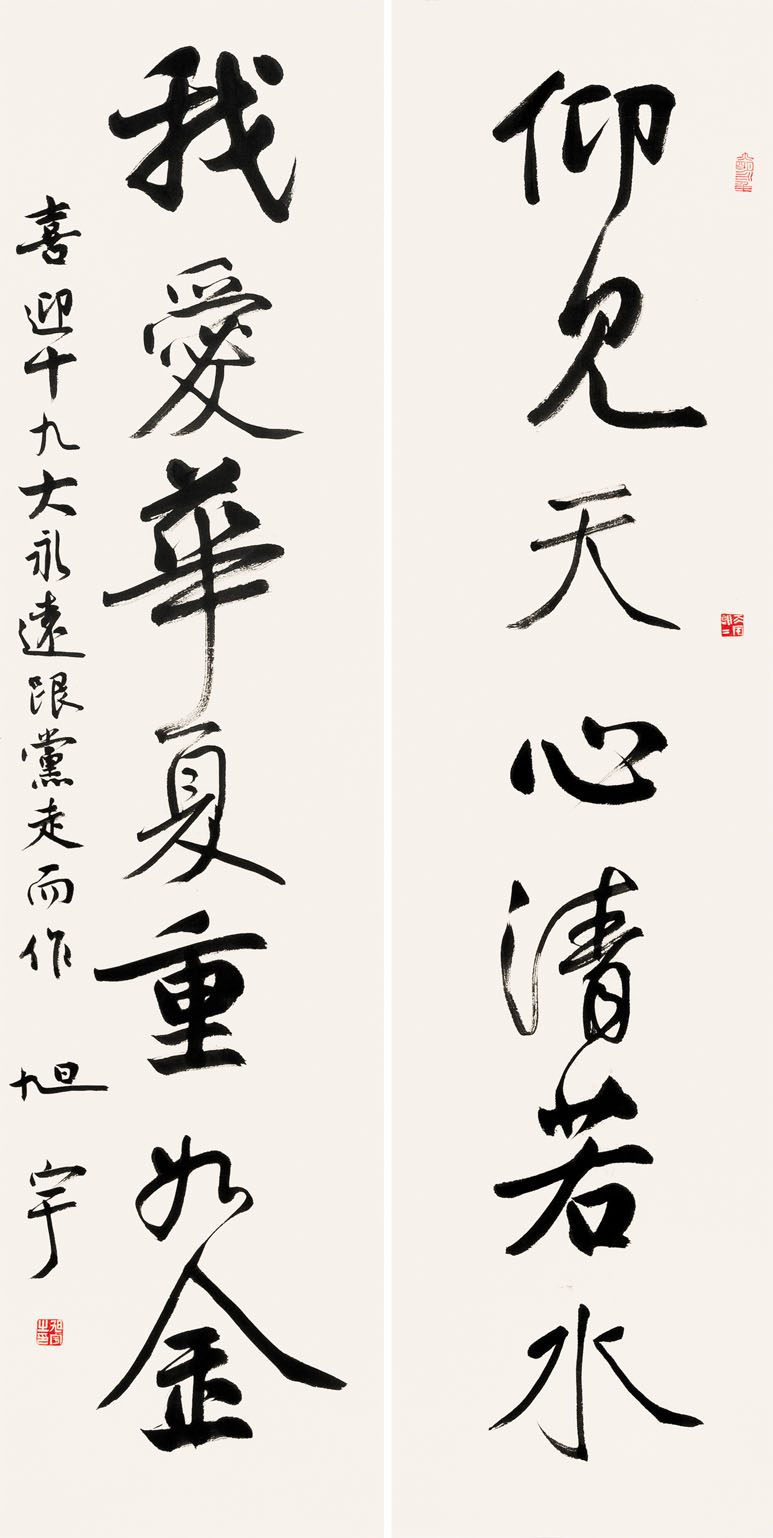 仰见天心清若水
我愛華夏重如金
喜迎十九大永遠跟黨走而作
旭宇